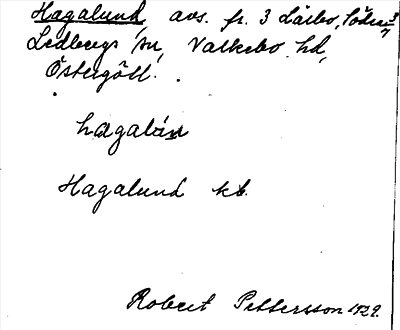 Hagalund, avs. fr. 3 Lårbo, Södra 3/7
Ledbergs sn, Valkebo hd,
Östergötl.
hagalún
Hagalund kb.
Robert Pettersson 1929.